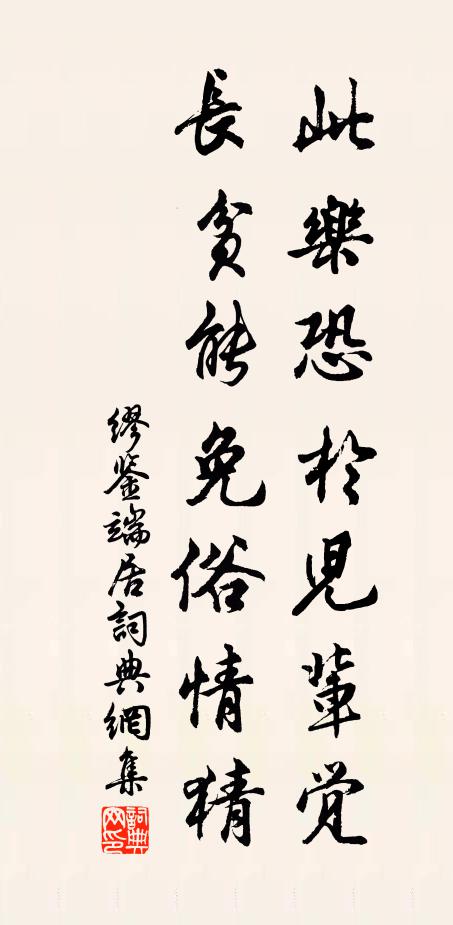 此樂恐於児輩觉
長貧能免俗情猜
繆鉴端居詞典網集
詞典网印